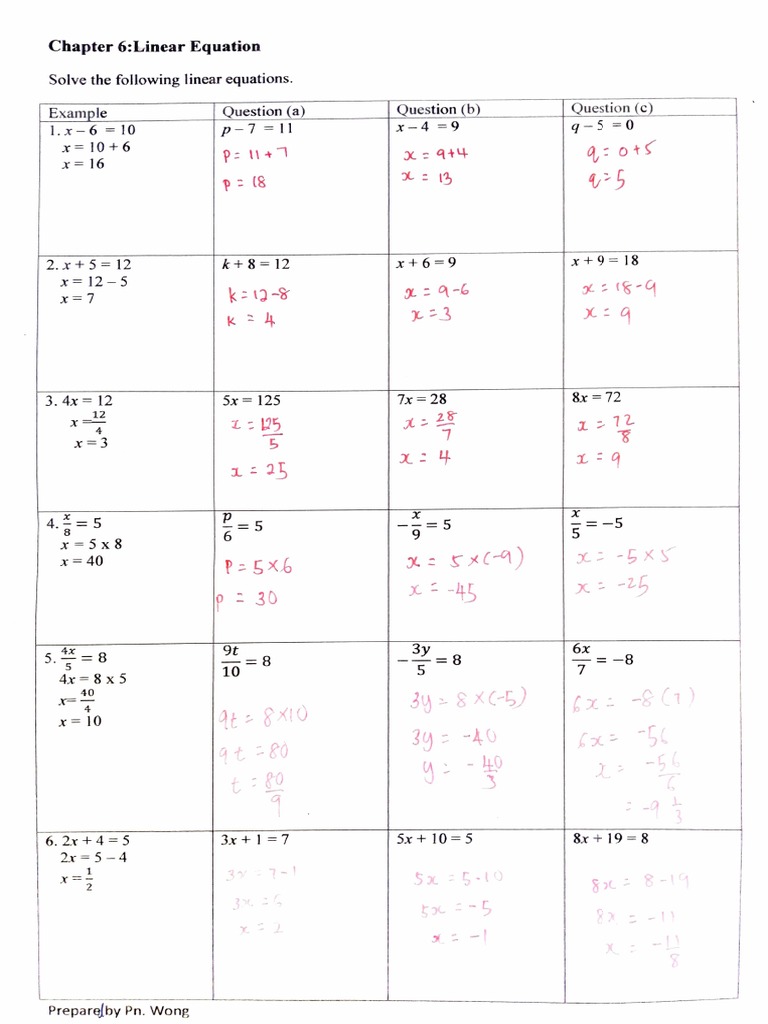 Chapter 6:Linear Equation
Solve the following linear equations.
Example
Question (a)
Question (b)
Question (c)
1. x – 6 = 10
x = 10 + 6
x = 16
p – 7 = 11
P = 11 + 7
P = 18
x – 4 = 9
x = 9+4
x = 13
q – 5 = 0
q = 0+5
q = 5
2. x + 5 = 12
x = 12 – 5
x = 7
k + 8 = 12
k = 12-8
k = 4
x + 6 = 9
x = 9-6
x = 3
x + 9 = 18
x = 18-9
x = 9
3. 4x = 12
x = 12/4
x = 3
5x = 125
x = 125/5
x = 25
7x = 28
x = 28/7
x = 4
8x = 72
x = 72/8
x = 9
4. x/8 = 5
x = 5 x 8
x = 40
p/6 = 5
P = 5 × 6
p = 30
– x/9 = 5
x = 5 × (-9)
x = -45
x/5 = –5
x = -5 × 5
x = -25
5. 4x/5 = 8
4x = 8 x 5
x= 40/4
x = 10
9t/10 = 8
9t = 8 × 10
9t = 80
t = 80/9
– 3y/5 = 8
3y = 8 × (-5)
3y = -40
y = - 40/3
6x/7 = –8
6x = -8 (7)
6x = -56
x = -56/6
= -9 1/3
6. 2x + 4 = 5
2x = 5 – 4
x = 1/2
3x + 1 = 7
3x = 7-1
3x = 6
x = 2
5x + 10 = 5
5x = 5-10
5x = -5
x = -1
8x + 19 = 8
8x = 8-19
8x = -11
x = -11/8
Prepare by Pn. Wong